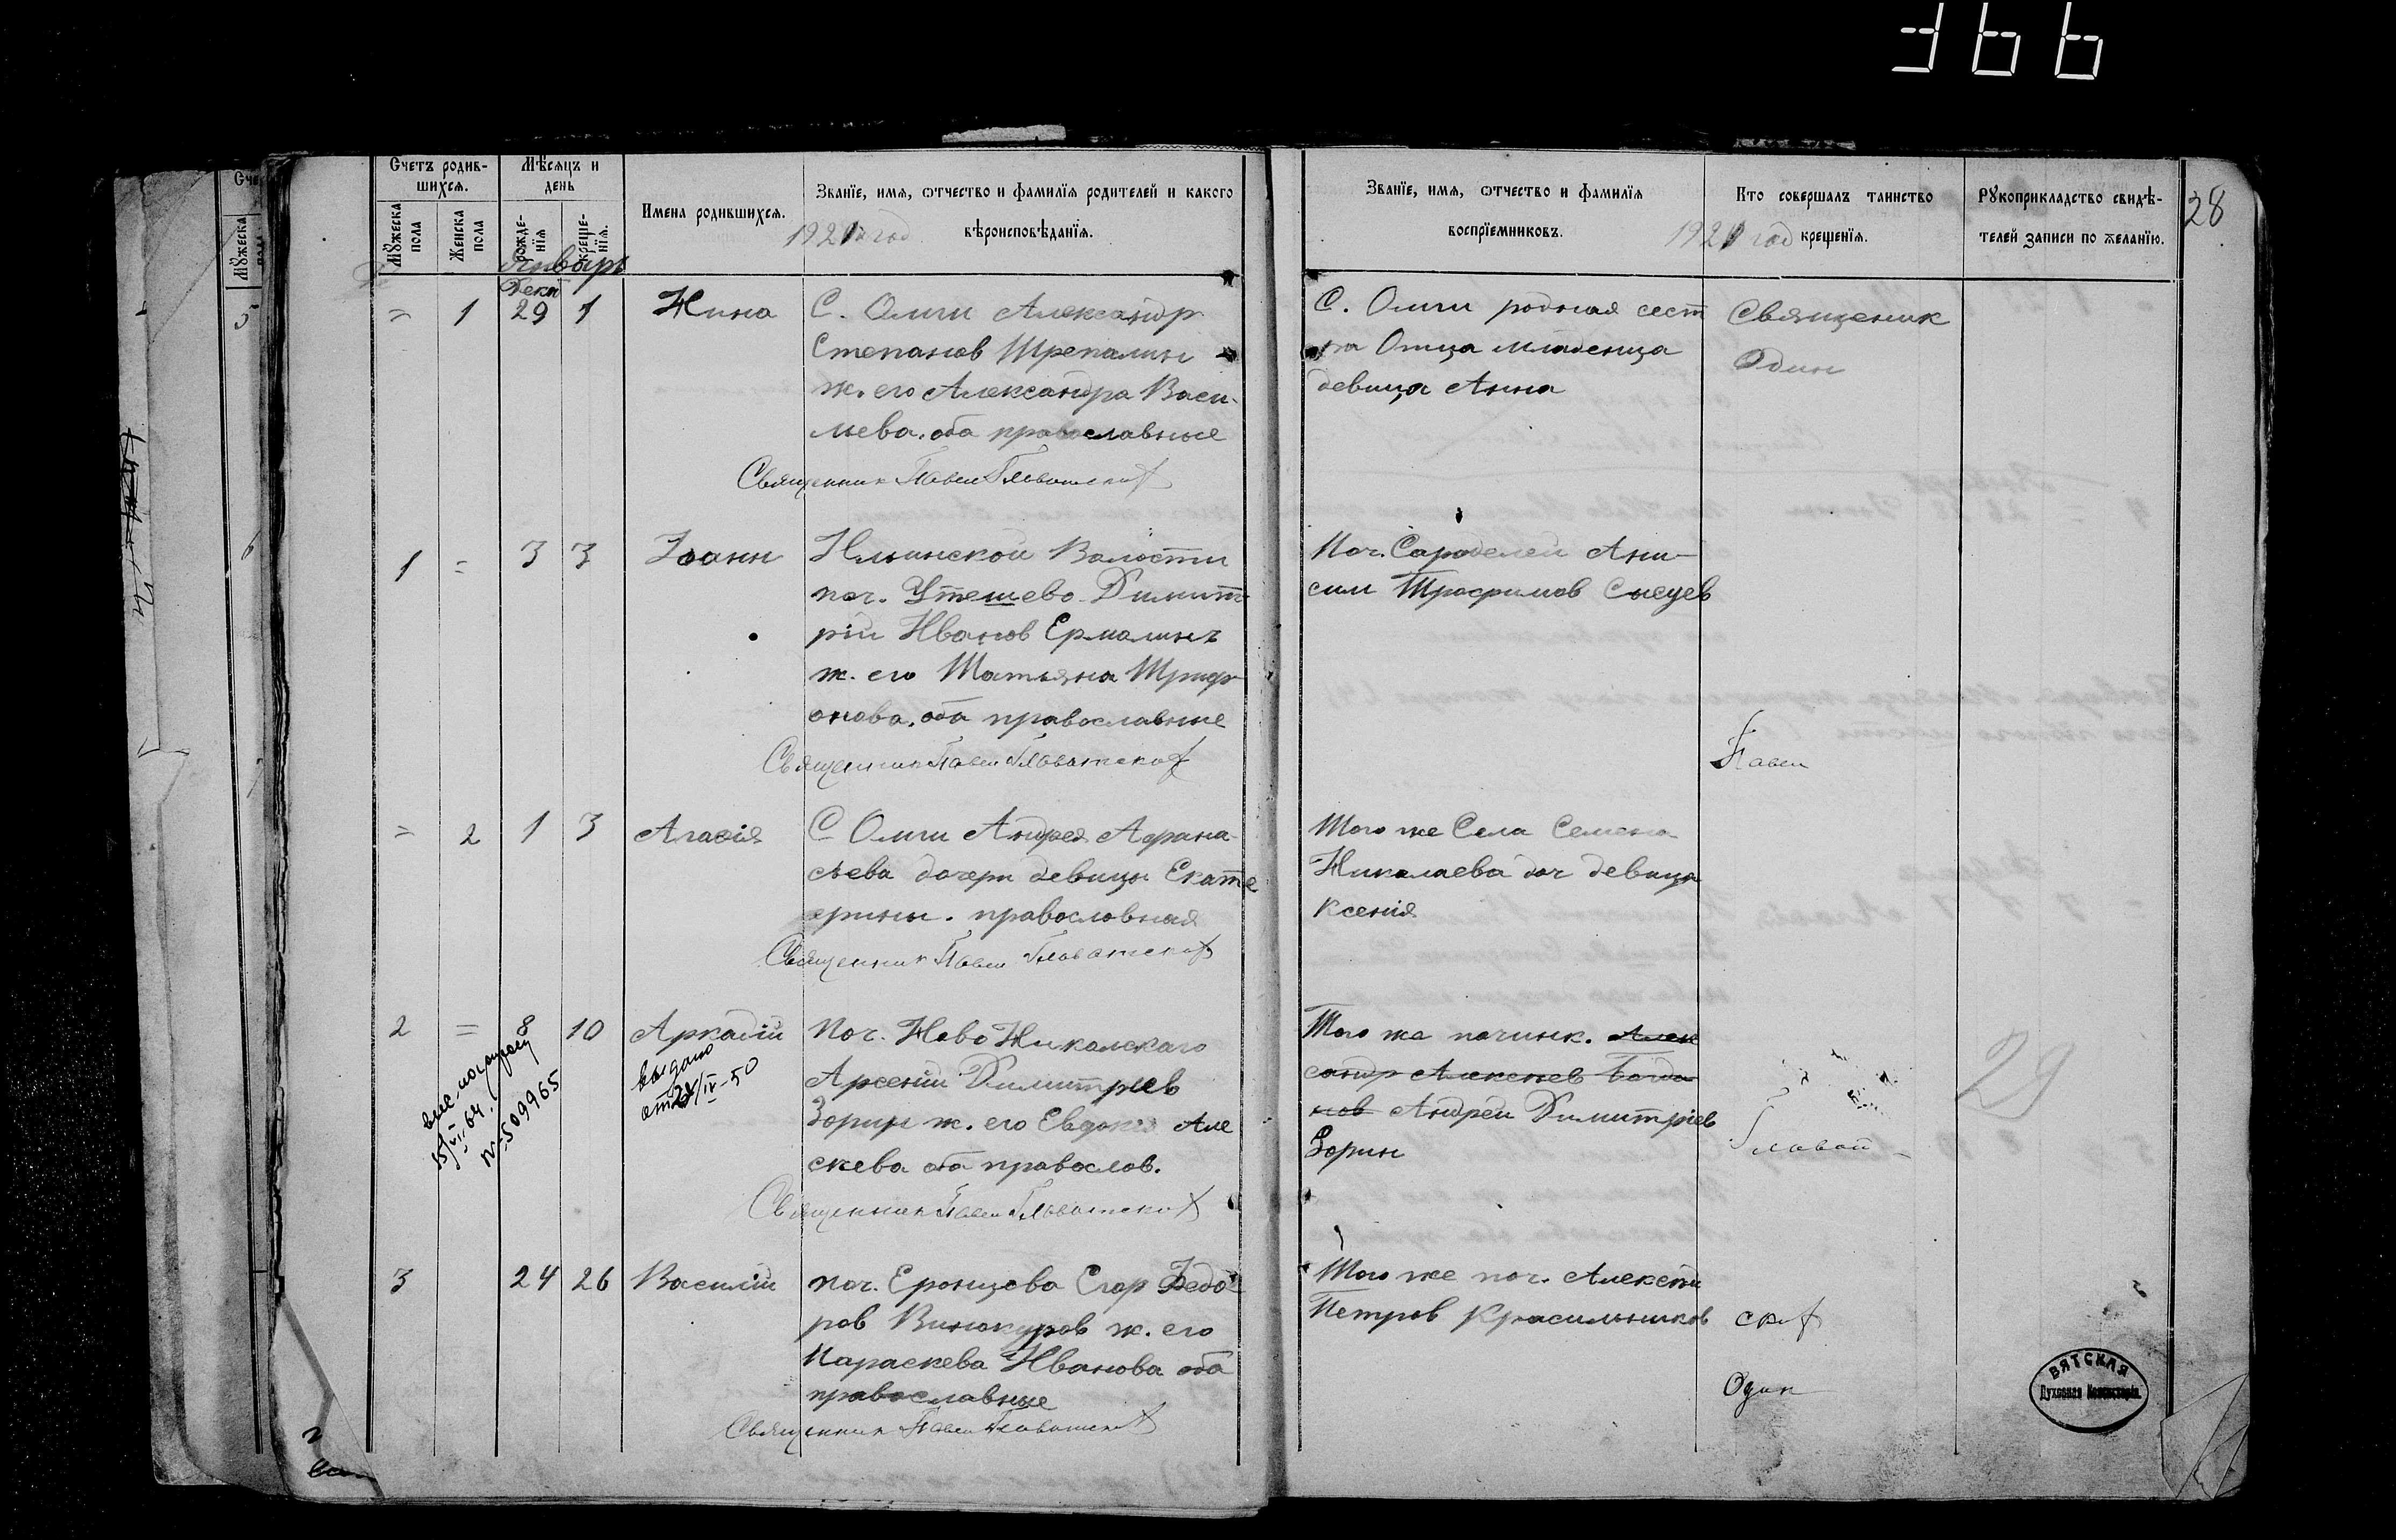 366
28
Счетъ родив-
шихся.
Мѣсяцъ и
день
Мужеска пола
Женска пола
рожде-
нія
креще-
нія.
Имена родившихся.
Званіе, имя, отчество и фамилія родителей и какого
вѣроисповѣданія.
1921 год
Званіе, имя, отчество и фамилія
воспріемниковъ.
Кто совершалъ таинство
крещенія.
1921 год
Рукоприкладство свидѣ-
телей записи по желанію.
Январь
Дек
= 1 29 1 Нина
С. Олги Александр
Степанов Трепалин
ж. его Александра Васи-
льева. оба православные
Священник Павел Главатских
С. Олги родная сест
ра Отца младенца
девица Анна
Священик
Один
1 = 3 3 Іоанн
Ильинской Волости
поч. Утешево Димит
рій Иванов Ермалинъ
ж. его Татьяна Триф
онова. оба православные
Священник Павел Главатских
Поч. Ани-
сим Трофимов Сысуев
Павел
= 2 1 3 Агафія
С Олги Андрея Афана-
сьева дочери девицы Екате
ерины. православная
Священник Павел Главатских
Того же Села Семена
Николаева доч девица
Ксенія
2 = 8 10 Аркадій
выдано
от 28/IV-50
15/VII 64.
№-509965
Поч. Ново Николскаго
Арсеній Димитріев
Зорин ж. его Евдокия Але
ксева оба православ.
Священник Павел Главатских
Того же починк. Алек
сандр Алексеев Богда
нов Андрей Димитріев
Зорин
Глават-
29
3 24 26 Василій
поч. Еронцева Егор Федо
ров Винокуров ж. его
Параскева Иванова оба
православные
Священник Павел Главатских
Того же поч. Алексей
Петров Красильников
ских
Один
ВЯТСКАЯ
Духовная Консисторія